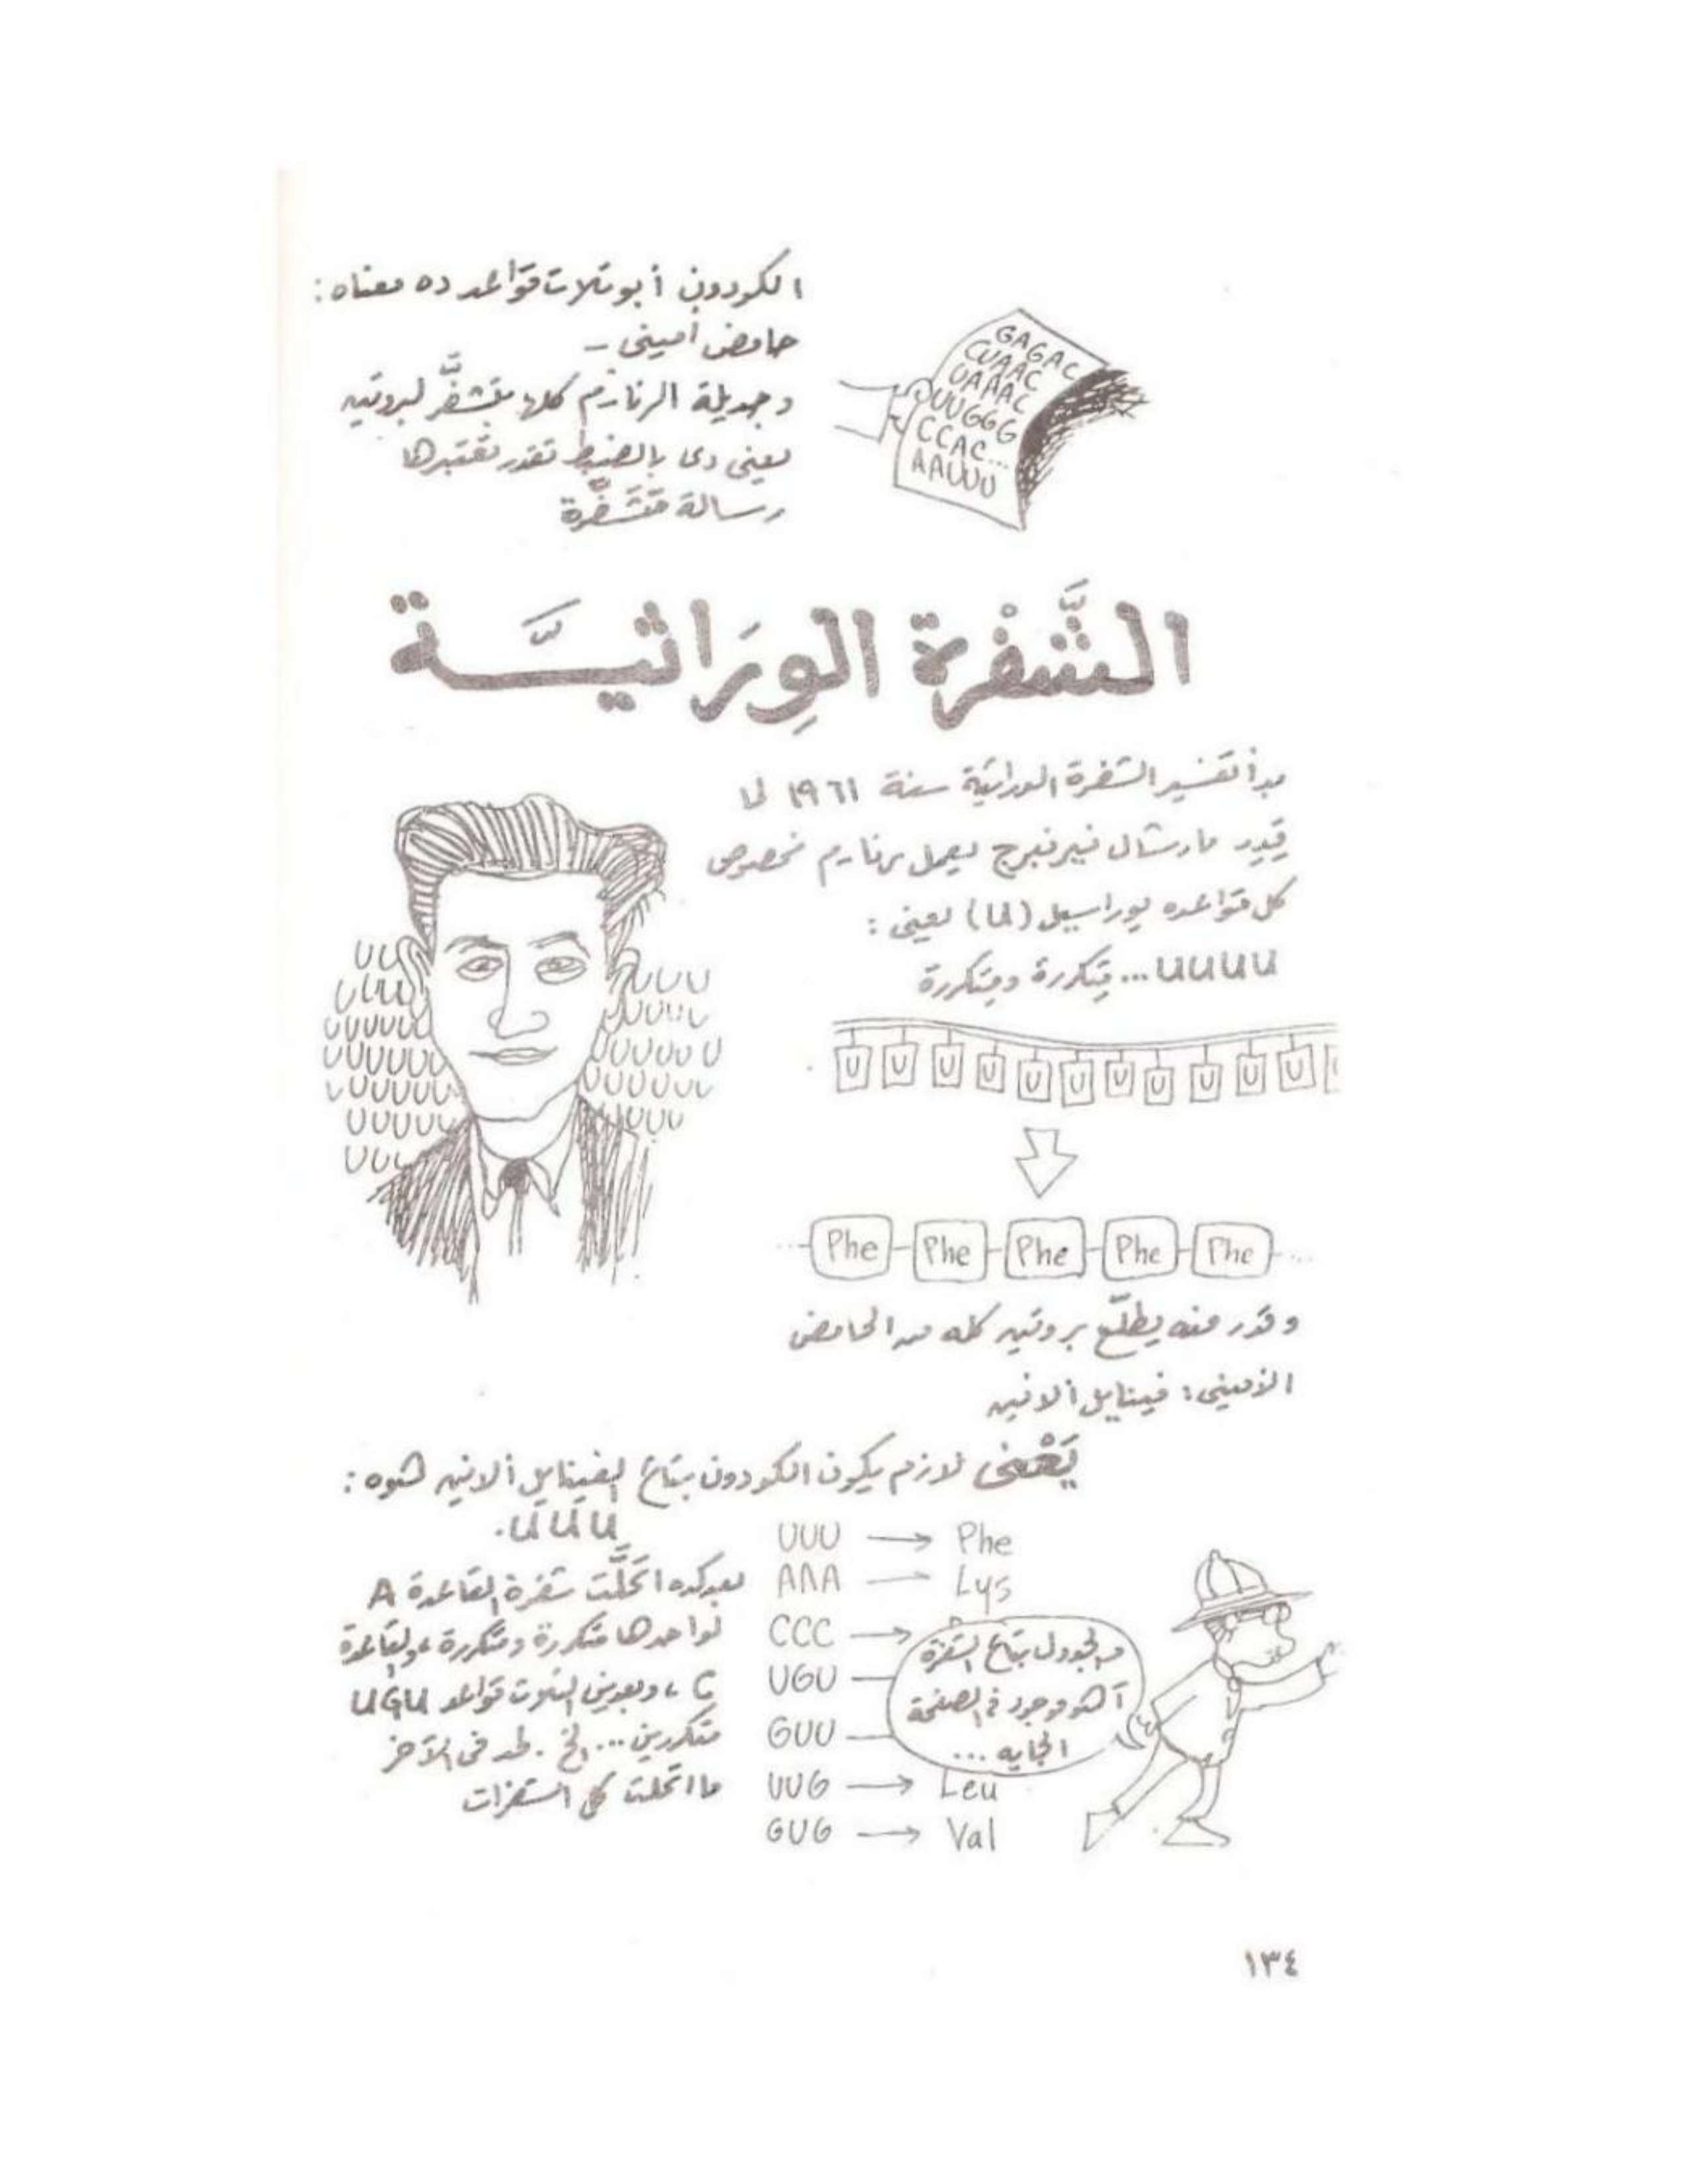 الكودون أبو تلات قواعد ده معناه:
حامض أمينى –
وجديلة الرنا م كلها بتشفَّر لبروتين
يعنى دى بالضبط تقدر تعتبرها
رسالة متشفَّرة
GAGAC
CUAAC
UAAAC
UUGGG
CCAC...
AAUUU
الشَّفْرة الوِرَاثيَّة
بدأ تفسير الشفرة الوراثية سنة ١٩٦١ لما
قِدِر مارشال نيرنبرج يعمل رنا م مخصوص
كل قواعده يوراسيل (U) يعنى:
UUUU... متكررة ومتكررة
U U U U U U U U U U U
UU
UUU
UUUUU
UUUUUU
UUUUUU
UUUUU
UUU
UUUU
UUUUU
UUUUUU
UUUUUU
UUUU
... Phe Phe Phe Phe Phe ...
وقدر منه يطلّع بروتين كله من الحامض
الأمينى: فينايل ألانين
يَعْنى لازم يكون الكودون بتاع الفينايل ألانين هوه:
UUU.
بعد كده اتحلَّت شفرة القاعدة A
لواحدها متكررة ومتكررة، والقاعدة
C، وبعدين التلات قواعد UGU
متكررين... إلخ. لحد فى الآخر
ما اتحلت كل الشفرات
UUU → Phe
AAA → Lys
CCC →
UGU
GUU
UUG → Leu
GUG → Val
والجدول بتاع الشفرة
أهو موجود فى الصفحة
الجايه...
١٣٤